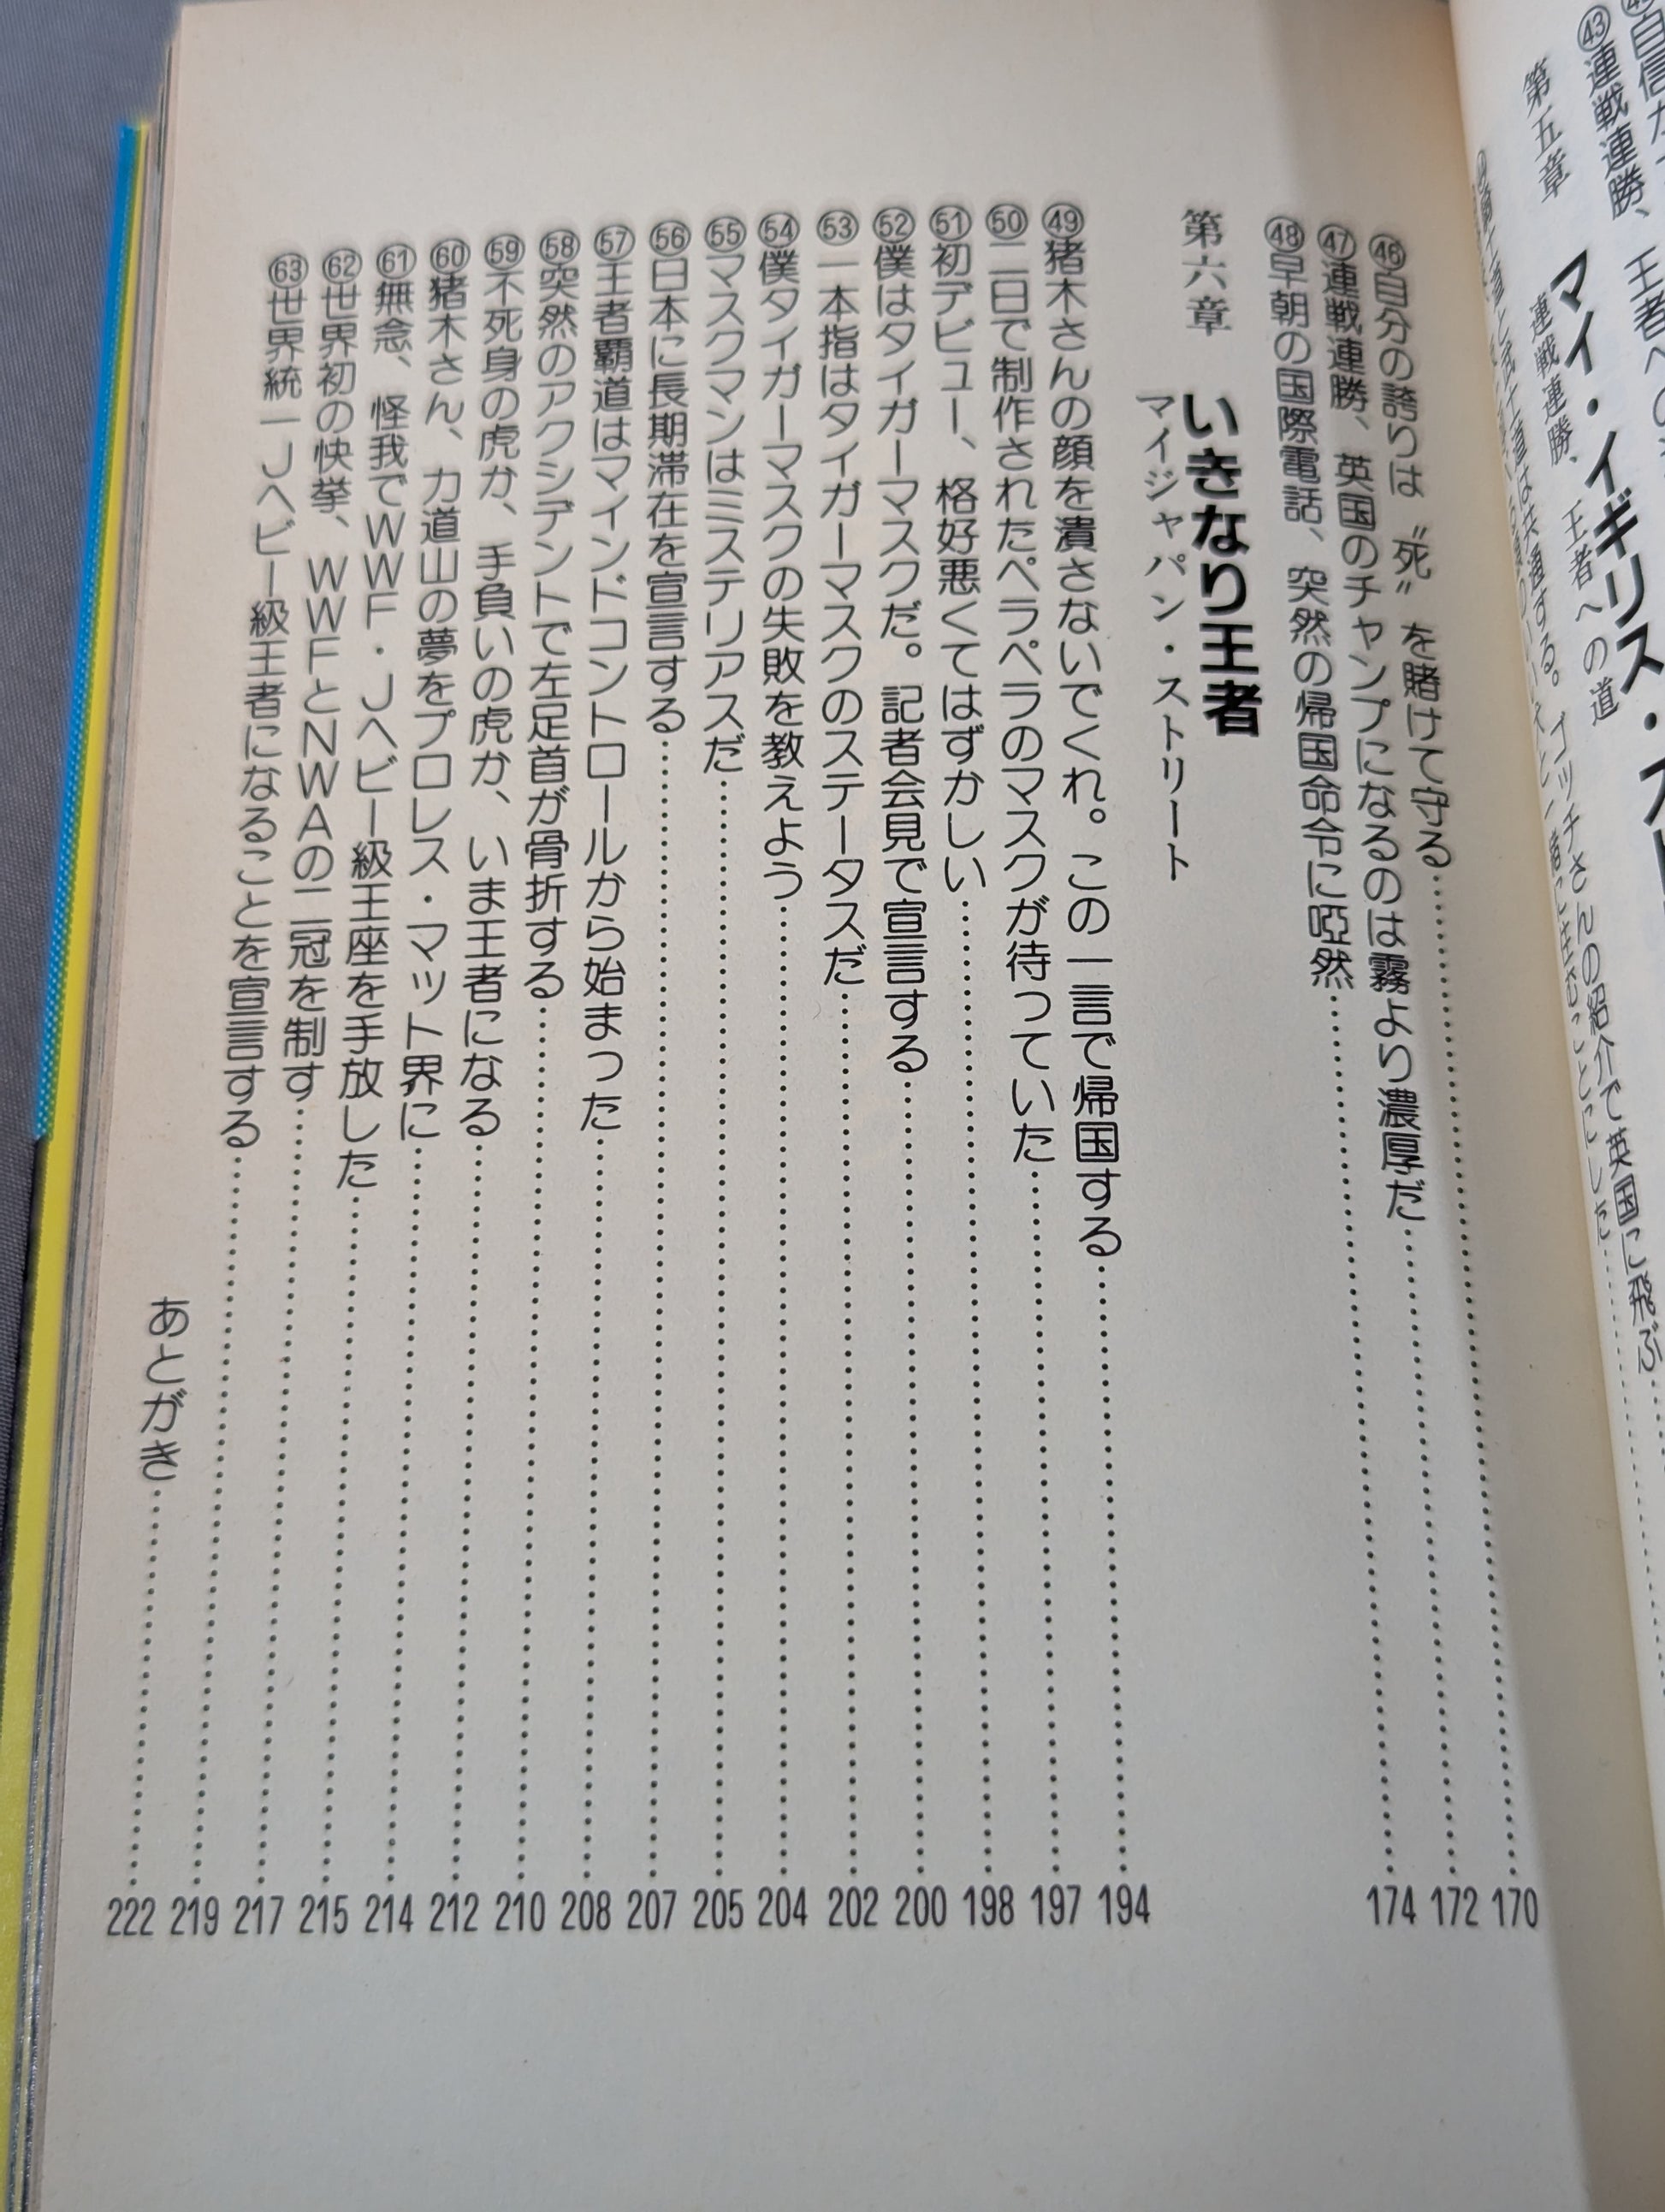 ㊸連戦連勝、王者への道
第五章
マイ・イギリス・スト
連戦連勝、王者への道
㊻自分の誇りは〝死〟を賭けて守る……170
㊼連戦連勝、英国のチャンプになるのは霧より濃厚だ……172
㊽早朝の国際電話、突然の帰国命令に啞然……174
第六章 いきなり王者
マイジャパン・ストリート
㊾猪木さんの顔を潰さないでくれ。この一言で帰国する……194
㊿二日で制作されたペラペラのマスクが待っていた……197
51初デビュー、格好悪くてはずかしい……198
52僕はタイガーマスクだ。記者会見で宣言する……200
53一本指はタイガーマスクのステータスだ……202
54僕タイガーマスクの失敗を教えよう……204
55マスクマンはミステリアスだ……205
56日本に長期滞在を宣言する……207
57王者覇道はマインドコントロールから始まった……208
58突然のアクシデントで左足首が骨折する……210
59不死身の虎か、手負いの虎か、いま王者になる……212
60猪木さん、力道山の夢をプロレス・マット界に……214
61無念、怪我でWWF・Jヘビー級王座を手放した……215
62世界初の快挙、WWFとNWAの二冠を制す……217
63世界統一Jヘビー級王者になることを宣言する……219
あとがき……222